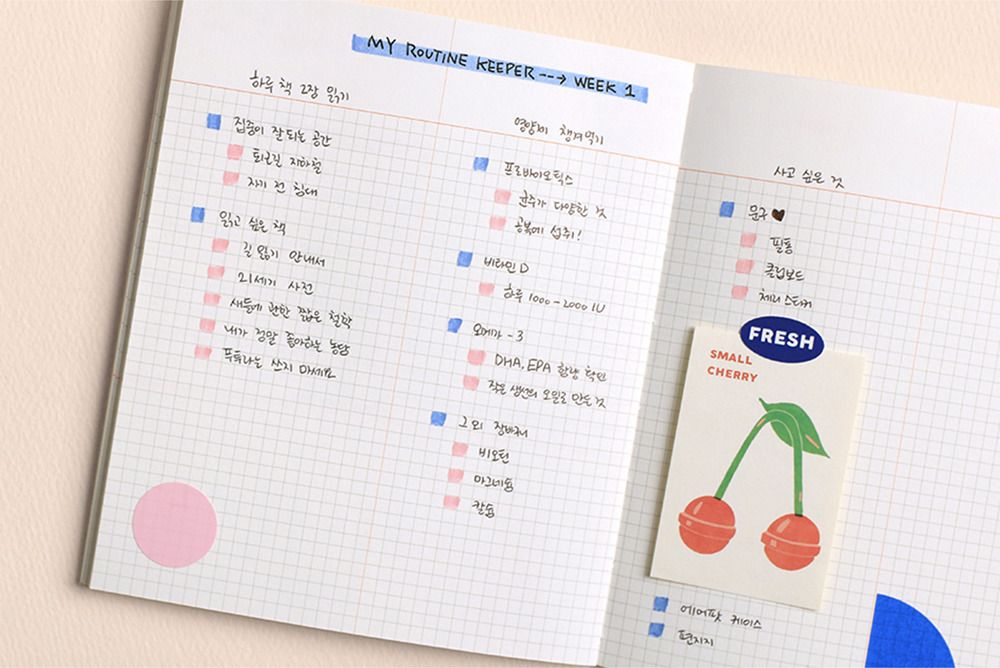 MY ROUTINE KEEPER --→ WEEK 1
하루 책 2장 읽기
집중이 잘 되는 공간
퇴근길 지하철
자기 전 침대
읽고 싶은 책
길 잃기 안내서
21세기 사전
새들에 관한 짧은 철학
내가 정말 좋아하는 농담
투투라는 쓰지 마세요
영양제 챙겨먹기
프로바이오틱스
균주가 다양한 것
공복에 섭취!
비타민 D
하루 1000-2000 IU
오메가-3
DHA, EPA 함량 확인
작은 생선의 오일로 만든 것
그 외 장바구니
비오틴
마그네슘
칼슘
사고 싶은 것
문구 ♥
필통
클립보드
체리 스티커
FRESH
SMALL
CHERRY
에어팟 케이스
편지지